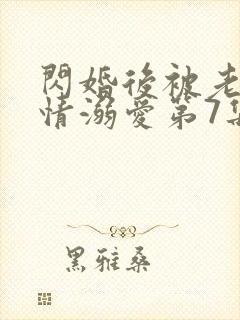 閃婚後被老
情溺愛第7集
黑雅桑